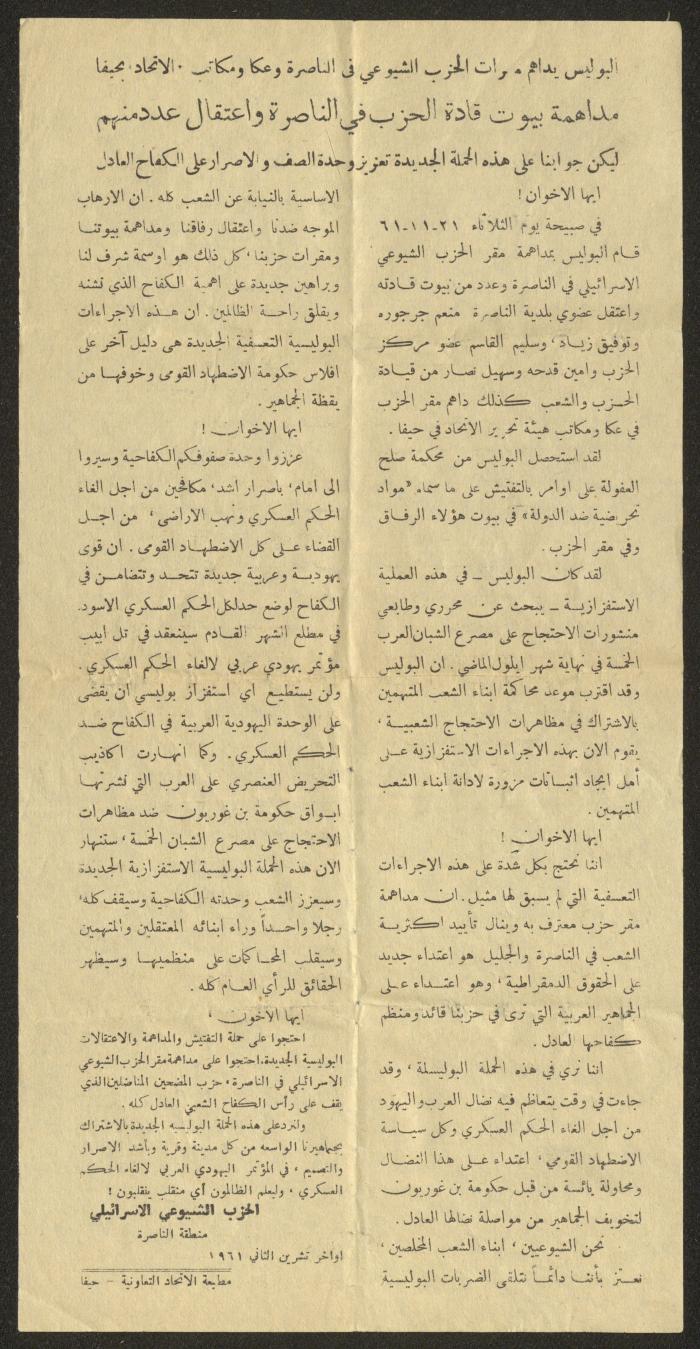 البوليس يداهم مقرات الحزب الشيوعي في الناصرة وعكا ومكاتب الاتحاد بحيفا
مداهمة بيوت قادة الحزب في الناصرة واعتقال عدد منهم
ليكن جوابنا على هذه الحملة الجديدة تعزيز وحدة الصف والاصرار على الكفاح العادل
ايها الاخوان !
في صبيحة يوم الثلاثاء ٢١-١١-٦١
قام البوليس بمداهمة مقر الحزب الشيوعي
الاسرائيلي في الناصرة وعدد من بيوت قادته
واعتقل عضوي بلدية الناصرة منعم جرجوره
وتوفيق زياد، وسليم القاسم عضو مركز
الحزب وامين قدحه وسهيل نصار من قيادة
الحزب والشعب كذلك داهم مقر الحزب
في عكا ومكاتب هيئة تحرير الاتحاد في حيفا .
لقد استحصل البوليس من محكمة صلح
العفولة على اوامر بالتفتيش على ما سماه «مواد
تحريضية ضد الدولة» في بيوت هؤلاء الرفاق
وفي مقر الحزب .
لقد كان البوليس – في هذه العملية
الاستفزازية – يبحث عن محرري وطابعي
منشورات الاحتجاج على مصرع الشبان العرب
الخمسة في نهاية شهر ايلول الماضي . ان البوليس
وقد اقترب موعد محاكمة ابناء الشعب المتهمين
بالاشتراك في مظاهرات الاحتجاج الشعبية ،
يقوم الان بهذه الاجراءات الاستفزازية على
أمل ايجاد اثباتات مزورة لادانة ابناء الشعب
المتهمين .
ايها الاخوان !
اننا نحتج بكل شدة على هذه الاجراءات
التعسفية التي لم يسبق لها مثيل . ان مداهمة
مقر حزب معترف به وينال تأييد اكثرية
الشعب في الناصرة والجليل هو اعتداء جديد
على الحقوق الدمقراطية ، وهو اعتداء على
الجماهير العربية التي ترى في حزبنا قائد ومنظم
كفاحها لعادل .
اننا نرى في هذه الحملة البوليسلة ، وقد
جاءت في وقت يتعاظم فيه نضال العرب واليهود
من اجل الغاء الحكم العسكري وكل سياسة
الاضطهاد القومي ، اعتداء على هذا النضال
ومحاولة يائسة من قبل حكومة بن غوريون
لتخويف الجماهير من مواصلة نضالها العادل .
نحن الشيوعيين ، ابناء الشعب المخلصين ،
نعتز بأننا دائماً نتلقى الضربات البوليسية
الاساسية بالنيابة عن الشعب كله . ان الارهاب
الموجه ضدنا واعتقال رفاقنا ومداهمة بيوتنا
ومقرات حزبنا ، كل ذلك هو اوسمة شرف لنا
وبراهين جديدة على اهمية الكفاح الذي نشنه
ويقلق راحة الظالمين . ان هذه الاجراءات
البوليسية التعسفية الجديدة هي دليل آخر على
افلاس حكومة الاضطهاد القومي وخوفها من
يقظة الجماهير .
ايها الاخوان !
عززوا وحدة صفوفكم الكفاحية وسيروا
الى امام ، باصرار اشد ، مكافحين من اجل الغاء
الحكم العسكري ونهب الاراضي ، من اجل
القضاء على كل الاضطهاد القومي . ان قوى
يهودية وعربية جديدة تتحد وتتضامن في
الكفاح لوضع حد لكل الحكم العسكري الاسود.
في مطلع الشهر القادم سينعقد في تل ابيب
مؤتمر يهودي عربي لالغاء الحكم العسكري .
ولن يستطيع اي استفزاز بوليسي ان يقضي
على الوحدة اليهودية العربية في الكفاح ضد
الحكم العسكري . وكما انهارت اكاذيب
التحريض العنصري على العرب التي نشرتها
ابواق حكومة بن غوريون ضد مظاهرات
الاحتجاج على مصرع الشبان الخمسة ، ستنهار
الان هذه الحملة البوليسية الاستفزازية الجديدة
وسيعزز الشعب وحدته الكفاحية وسيقف كله ،
رجلا واحداً وراء ابنائه المعتقلين والمتهمين
وسيقلب المحاكمات على منظميها وسيظهر
الحقائق للرأي العام كله .
ايها الاخوان ،
احتجوا على حملة التفتيش والمداهمة والاعتقالات
البوليسية الجديدة. احتجوا على مداهمة مقر الحزب الشيوعي
الاسرائيلي في الناصرة ، حزب المضحين المناضلين الذي
يقف على رأس الكفاح الشعبي العادل كله .
ولنرد على هذه الحملة البوليسيه الجديدة بالاشتراك
بجماهيرنا الواسعه من كل مدينة وقرية وبأشد الاصرار
والتصميم ، في المؤتمر اليهودي العربي لالغاء الحكم
العسكري ، وليعلم الظالمون أي منقلب ينقلبون !
الحزب الشيوعي الاسرائيلي
منطقة الناصرة
اواخر تشرين الثاني ١٩٦١
مطبعة الاتحاد التعاونية – حيفا